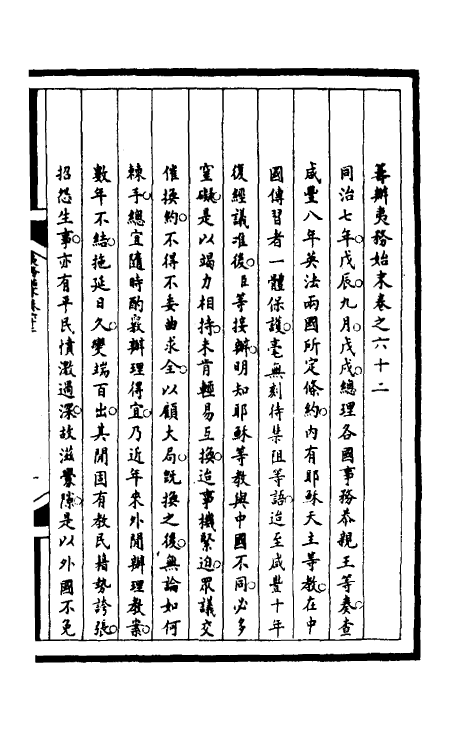 籌辦夷務始末卷之六十二
同治七年戊辰九月戊戌總理各國事務恭親王等奏查
咸豐八年英法兩國所定條約內有耶穌天主等教在中
國傳習者一體保護毫無刻待禁阻等語迨至咸豐十年
復經議准後臣等接辦明知耶穌等教與中國不同必多
窒礙是以竭力相持未肯輕易互換迨事機緊迫眾議交
催換約不得不委曲求全以顧大局旣換之後無論如何
棘手總宜隨時酌覈辦理得宜乃近年來外閒辦理教案
數年不結拖延日久變端百出其閒固有教民藉勢誇張
招怨生事亦有平民憤激過深故滋釁隙是以外國不免